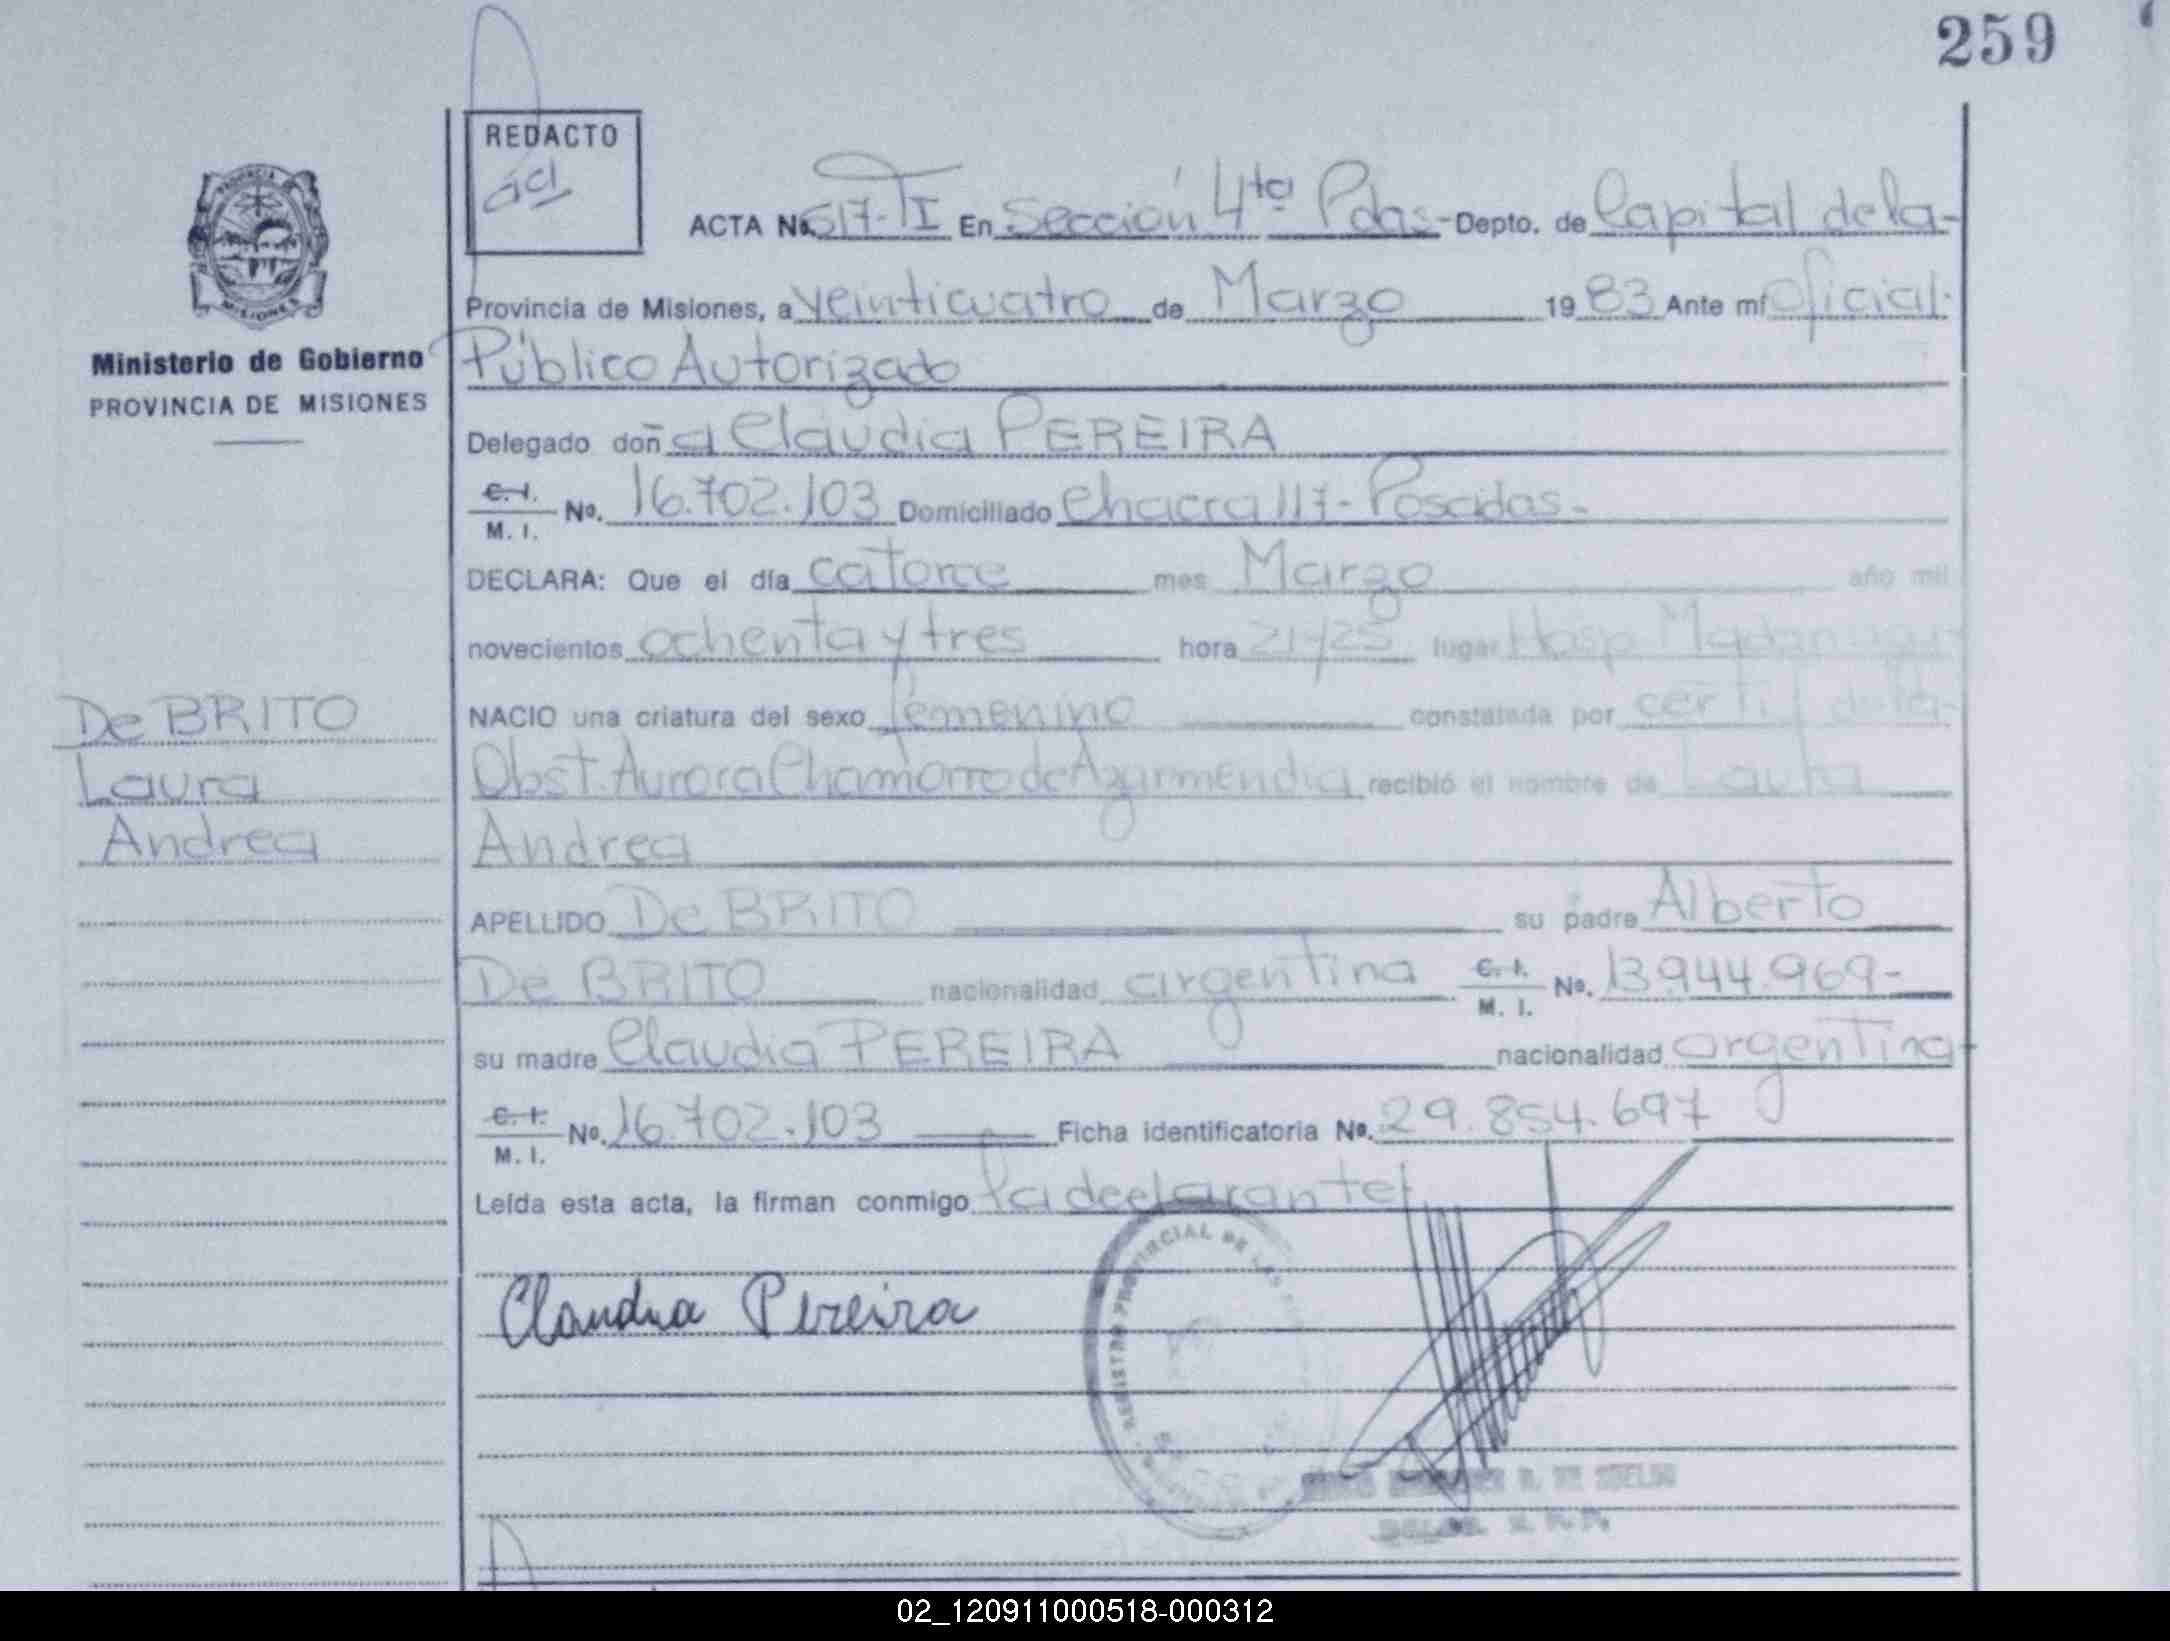 259
REDACTO
ACTA No. 517-TI En Sección 4ta Pdas- Depto. de Capital de la-
Provincia de Misiones, a veinticuatro de Marzo 1983 Ante mí Oficial
Ministerio de Gobierno
PROVINCIA DE MISIONES
Público Autorizado
Delegado doña Claudia PEREIRA
C. I.
M. I.
No. 16.702.103 Domiciliado Chacra 117- Posadas-
DECLARA: Que el día catorce mes Marzo año mil
novecientos ochenta y tres hora 21-25 lugar Hosp Madariaga-
De BRITO
Laura
Andrea
NACIO una criatura del sexo femenino constatada por certif de la-
Obst. Aurora Chamorro de Azarmendia recibió el nombre de Laura
Andrea
APELLIDO De BRITO su padre Alberto
De BRITO nacionalidad argentina C. I. M. I. No. 13.944.969-
su madre Claudia PEREIRA nacionalidad argentina-
C. I. M. I. No. 16.702.103 Ficha identificatoria No. 29.854.697
Leída esta acta, la firman conmigo la declarante
REGISTRO PROVINCIAL DE LAS
Claudia Pereira
02_120911000518-000312